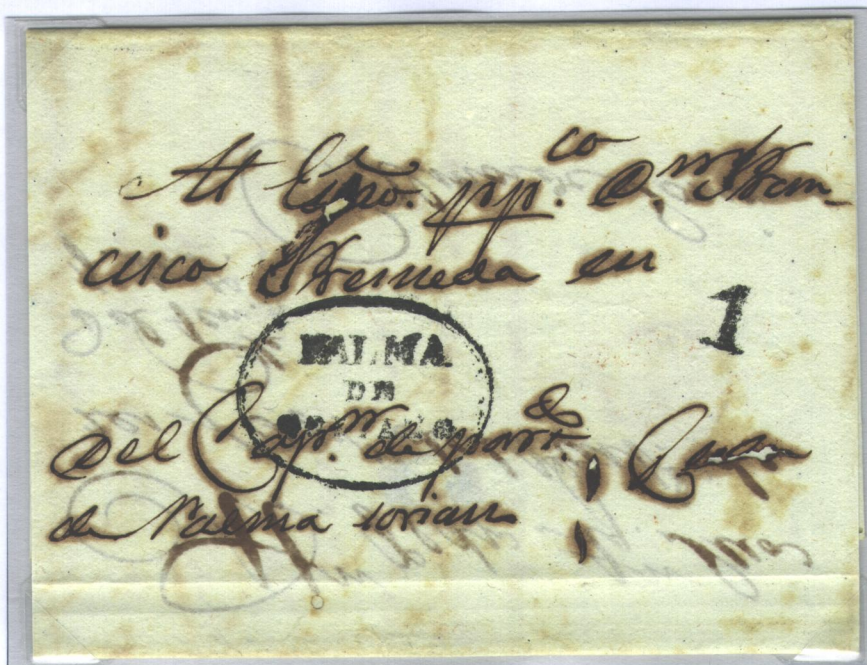 Al Esno. pp.co D. Fran-
cisco Tremeda en
1
PALMA
DE
SORIANO
Del Cap.n de part.do
de Palma soriano